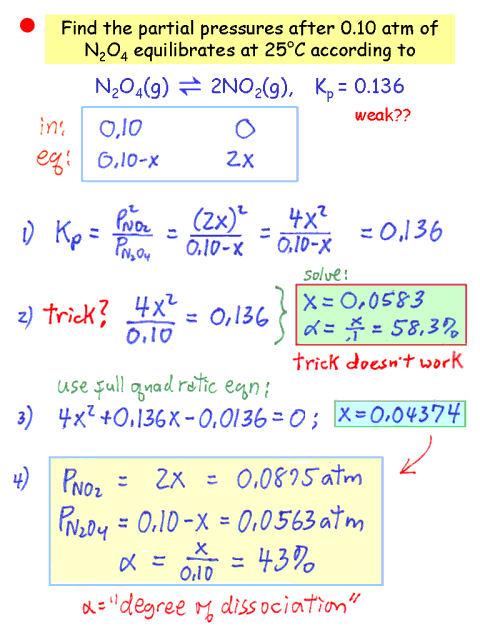 Find the partial pressures after 0.10 atm of
N₂O₄ equilibrates at 25°C according to
N₂O₄(g) ⇌ 2NO₂(g), Kp = 0.136
weak??
in: 0,10 0
eq: 0,10-x 2x
1) Kp = P²NO₂ / PN₂O₄ = (2x)² / 0,10-x = 4x² / 0,10-x = 0,136
solve:
2) trick? 4x² / 0,10 = 0,136 } x = 0,0583
α = x / ,1 = 58,3%
trick doesn't work
use full quadratic eqn:
3) 4x² + 0,136x - 0,0136 = 0 ; x = 0,04374
4) PNO₂ = 2x = 0,0875 atm
PN₂O₄ = 0,10-x = 0,0563 atm
α = x / 0,10 = 43%
α = "degree of dissociation"